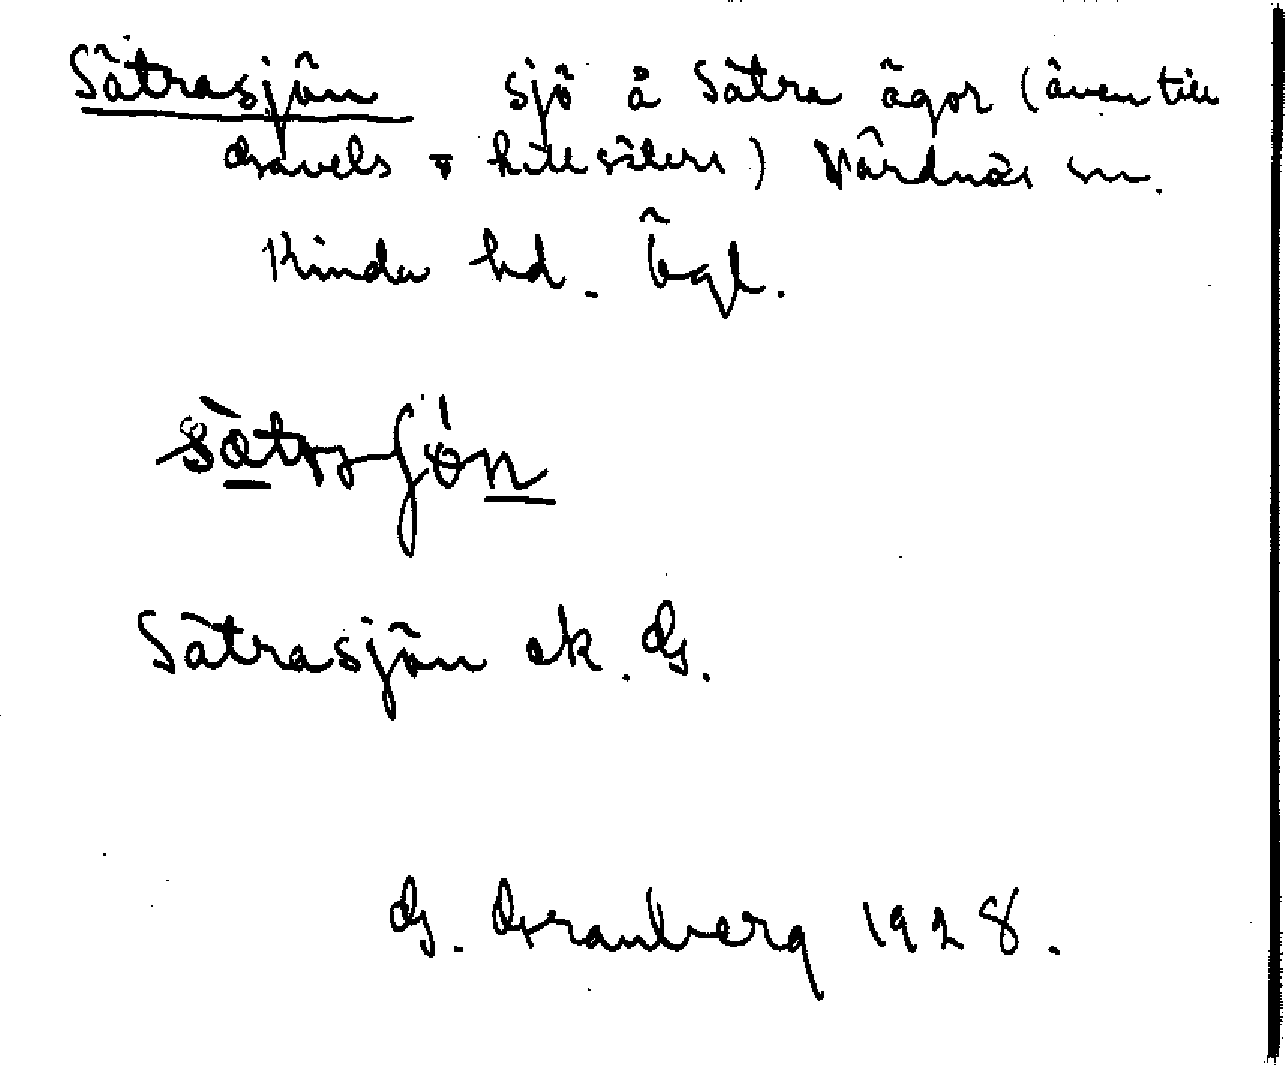 Sätrasjön sjö å Sätra ägor (även till
Gravels o. hillsäters) Vårdnäs sn.
Kinda hd. Ögl.
Sätrasjön ek. G.
G. Granberg 1928.